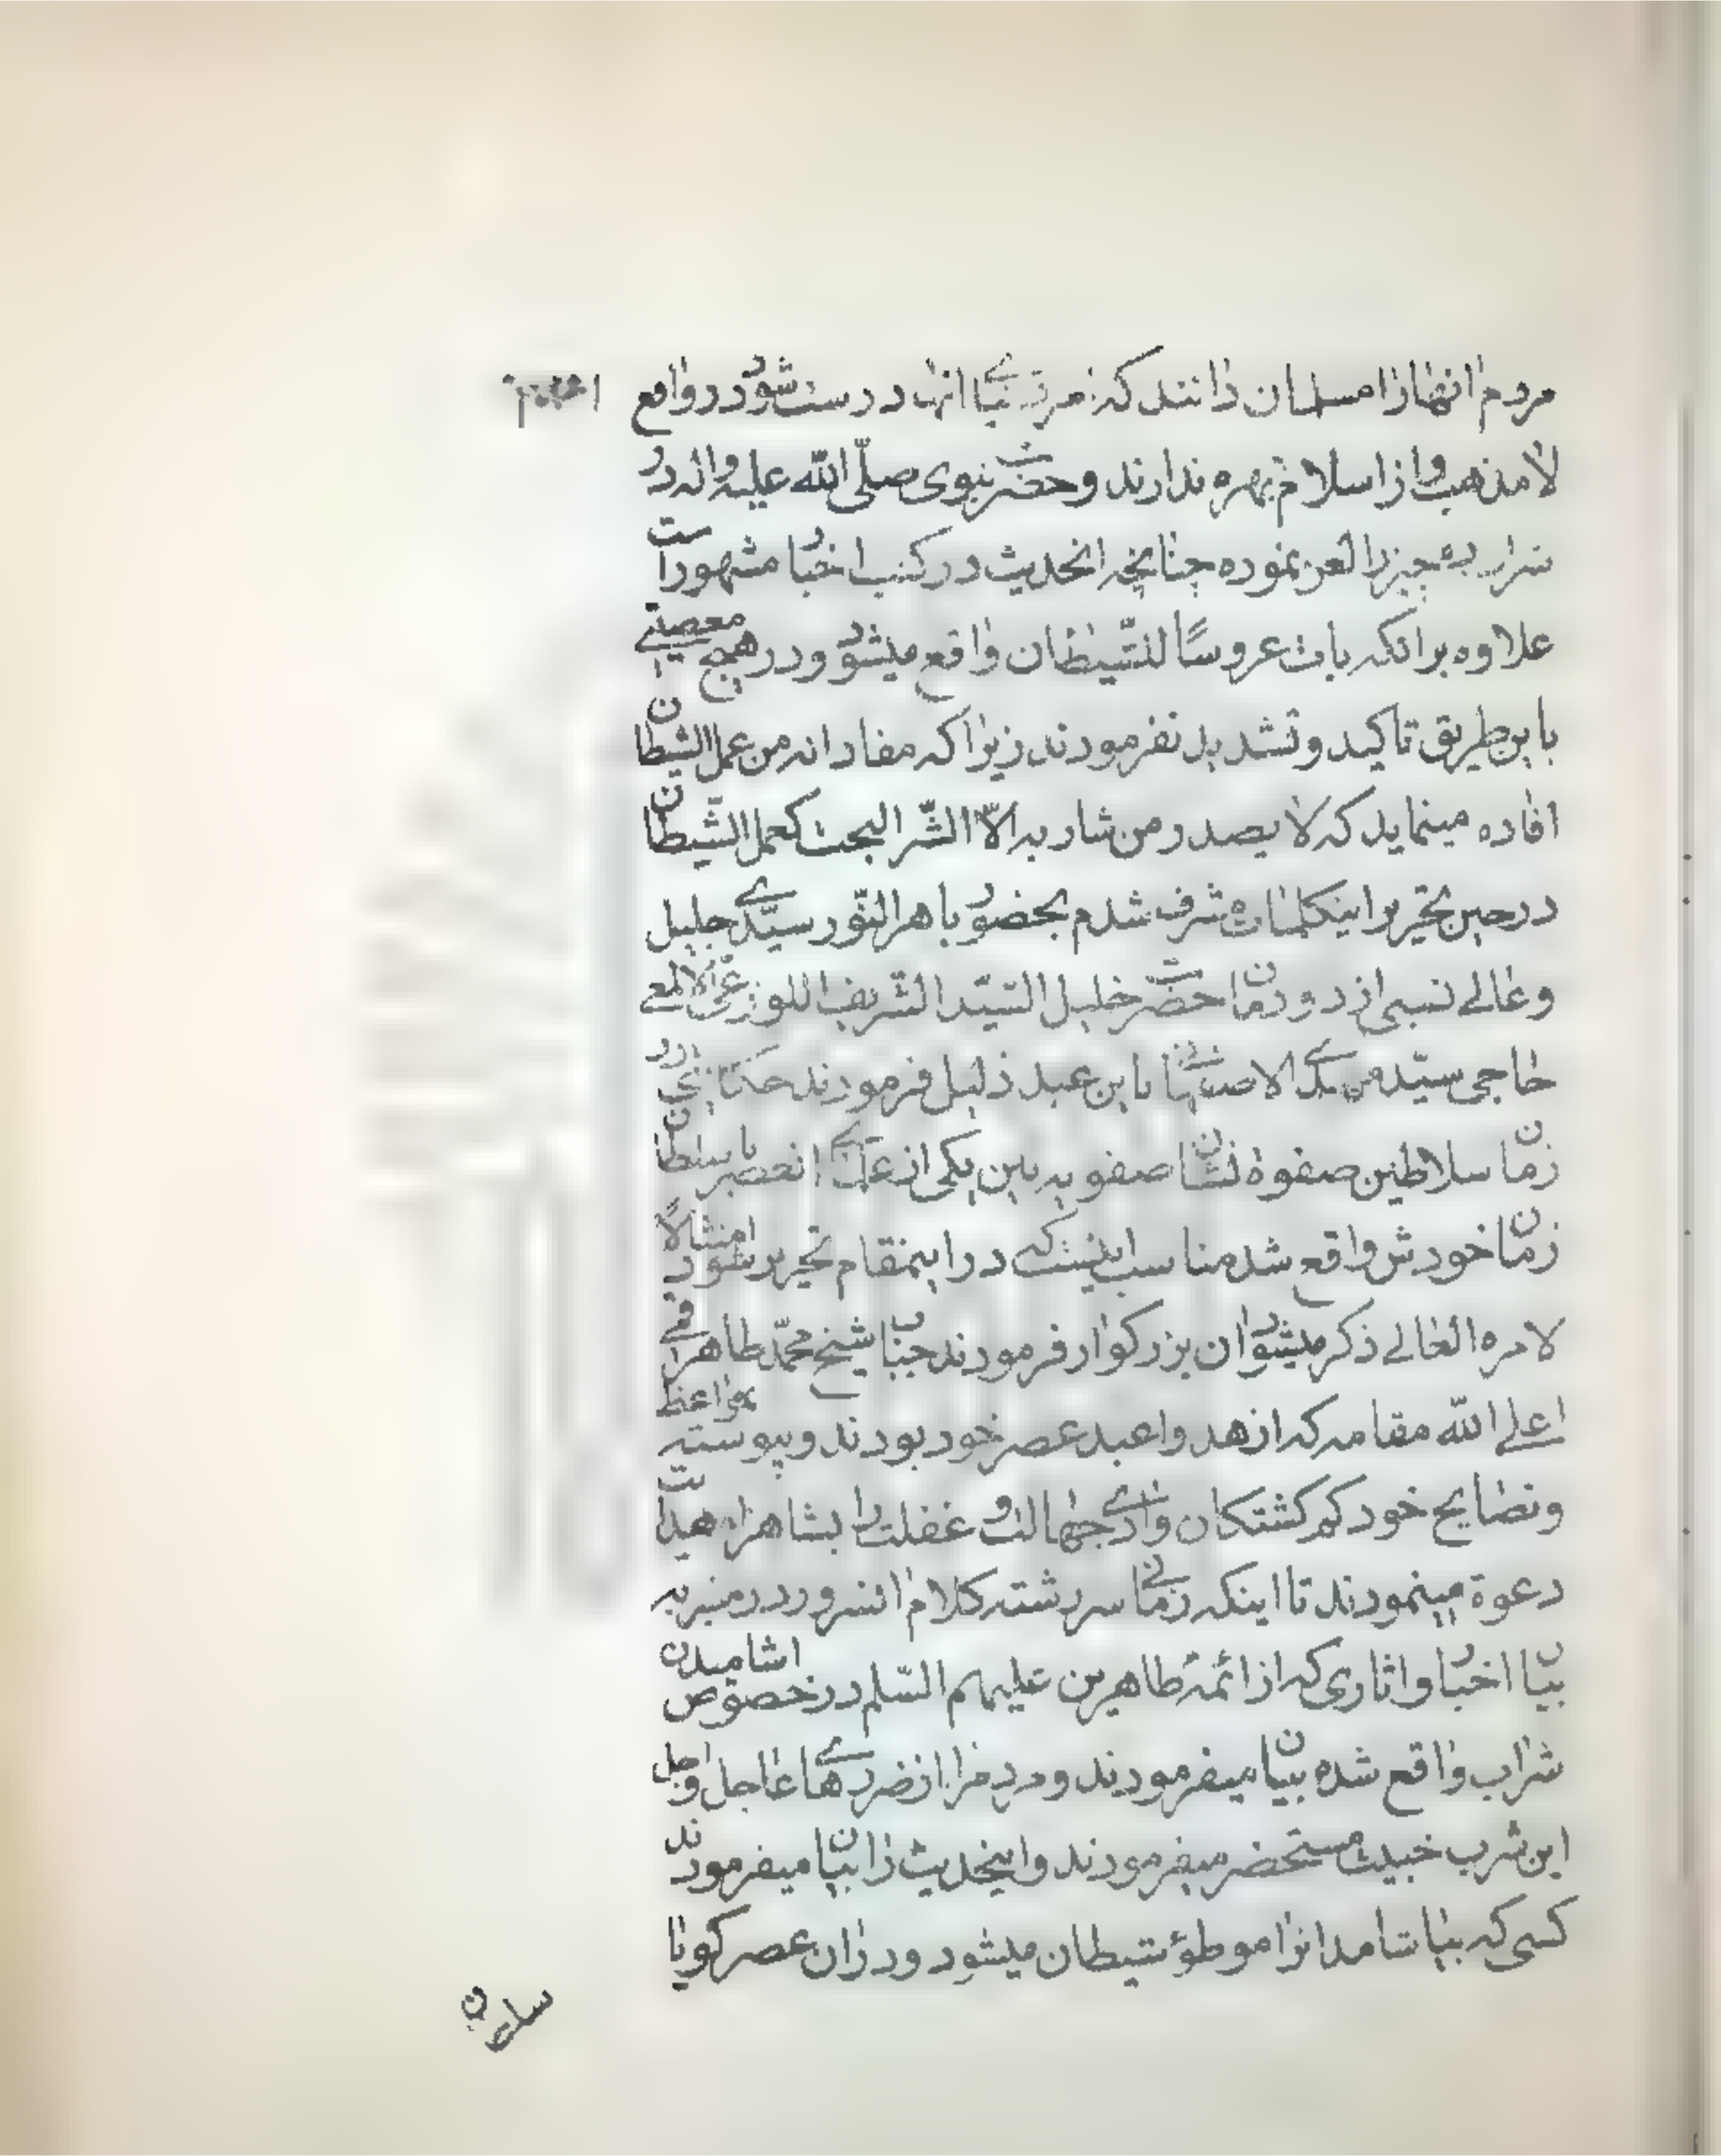 مردم انها را مسلمان دانند که امر دنیا انها درست شود در واقع
لامذهب و از اسلام بهره ندارند و حضرت نبوی صلّی الله علیه واله در
شراب ده چیز را لعن نموده چنانچه انحدیث در کتب اخبار مشهور است
علاوه بر انکه بات عروسًا للشّیطان واقع میشود و در هیچ معصیتے
باین طریق تاکید و تشدید نفرمودند زیرا که مفاد انه من عمل الشیطان
افاده مینماید که لا یصدر من شاربه الّا الشّر البحت کعمل الشّیطان
در حین تحریر اینکلمات مشرف شدم بحضور باهر النّور سیّدے جلیل
و عالے نسبی از دودمان حضرت خلیل السیّد الشّریف اللوذعی الالمعے
حاجی سیّد الاصفهانے باین عبد ذلیل فرمودند حکایتی در
زمان سلاطین صفوة نشان صفویه بین یکی از علمای انعصر با سلطان
زمان خودش واقع شد مناسب اینست که در اینمقام تحریر شود امتثالًا
لامره العالے ذکر میشود ان بزرکوار فرمودند جناب شیخ محمّد طاهر
اعلے الله مقامه که ازهد و اعبد عصر خود بودند و پیوسته بمواعظ
و نصایح خود کم کشتکان وادے جهالت و غفلت را بشاهراه هدایت
دعوة مینمودند تا اینکه زمانے سررشته کلام انسرور در منبر به
بیان اخبار و اثاری که از ائمّهٔ طاهرین علیهم السّلم در خصوص اشامیدن
شراب واقع شده بیان میفرمودند و مردم را از ضررهاے عاجل و اجل
این شرب خبیث مستحضر میفرمودند و اینحدیث را بیان میفرمودند
کسی که بیاشامد انرا موطوء شیطان میشود و در ان عصر کویا